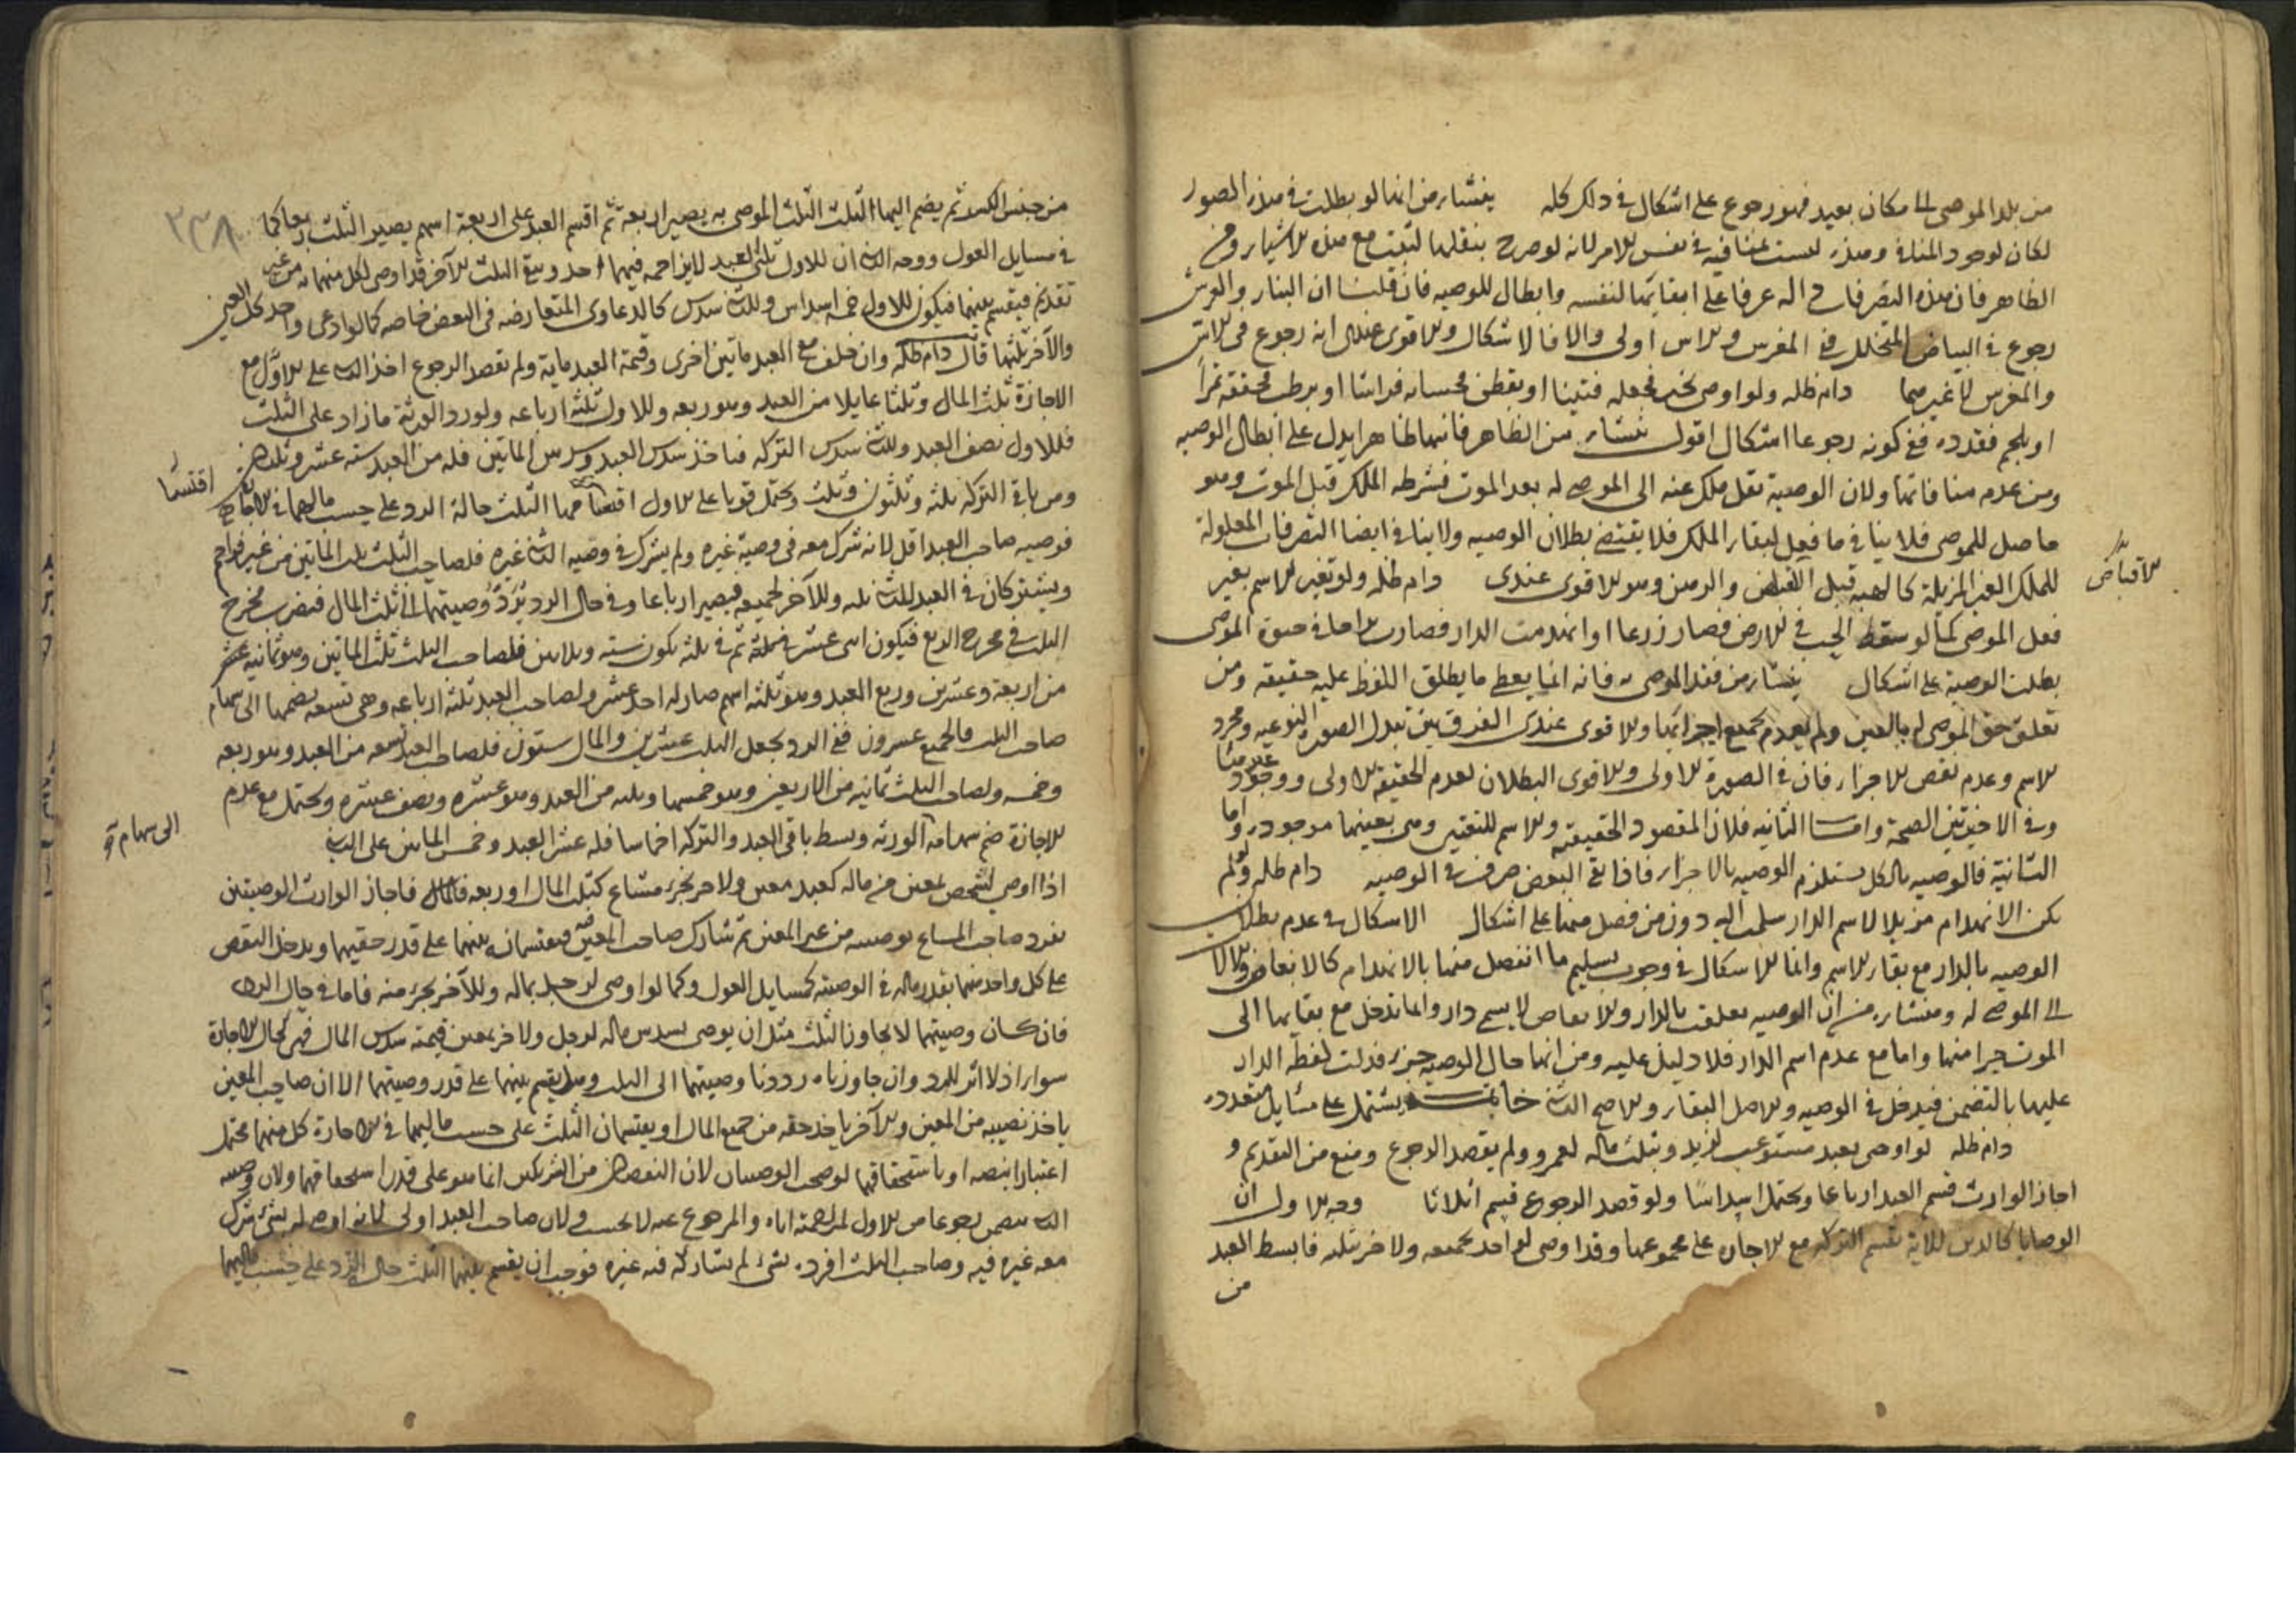 من بلد الموصى الى مكان بعيد فهو رجوع على اشكال في ذلك كله ينشاء من انها لو بطلت في هذه الصور
لكان لوجود المنافي وهذه ليست بمنافيه في نفس الامر لانه لو صرح بنقلها لثبتت مع هذه الاشياء ومن
الظاهر فان هذه التصرفات داله عرفا على ابقائها لنفسه وابطال للوصيه فان قلنا ان البناء والغرس
رجوع في البياض المتخلل ففي المغرس والاس اولى والا فالاشكال والاقوى عندى انه رجوع في الاس
والمغرس لا غيرهما دام ظله ولو اوصى بخبز فجعله فتيتا او بقطن فحشا به فراشا او برطب فجففه تمرا
او بلحم فقدده ففي كونه رجوعا اشكال اقول ينشاء من الظاهر فانها ظاهرا يدل على ابطال الوصيه
ومن عدم منافاتها ولان الوصية نقل ملك عنه الى الموصى له بعد الموت فشرطه الملك قبل الموت وهو
حاصل للموصى فلا ينافي ما فعل لبقاء الملك فلا يقتضى بطلان الوصيه ولا ينافي ايضا التصرفات المعلولة
للملك الغير المزيلة كالهبه قبل القبض والرهن وهو الاقوى عندى دام ظله ولو تغير الاسم بغير
الاقباض
فعل الموصى كما لو سقط الحب في الارض فصار زرعا او انهدمت الدار فصارت براحا في حيوة الموصى
بطلت الوصية على اشكال ينشاء من فقد الموصى به فانه انما يعطى ما يطلق اللفظ عليه حقيقه ومن
تعلق حق الموصى له بالعين ولم يعدم بجميع اجزائها والاقوى عندى الفرق بين تبدل الصوره النوعيه ومجرد
الاسم وعدم نقص الاجزاء فان في الصورة الاولى والاقوى البطلان لعدم الحقيقة الاولى ووجود
وفي الاخيرتين الصحة واما الثانيه فلان المقصود الحقيقه والاسم للتعيين وهى بعينها موجوده واما
الثانية فالوصيه بالكل يستلزم الوصيه بالاجزاء فاذا بقى البعض صرف في الوصيه دام ظله ولو لم
يكن الانهدام مزيلا لاسم الدار سلمت اليه دون من فصل منها على اشكال الاشكال في عدم بطلان
الوصيه بالدار مع بقاء الاسم وانما الاشكال في وجوب تسليم ما انفصل منها بالانهدام كالانقاض والالات
الى الموصى له ومنشاءه من ان الوصيه تعلقت بالدار والانقاض لا يسمى دار وانما تدخل مع بقائها الى
الموت جزا منها واما مع عدم اسم الدار فلا دليل عليه ومن انها حال الوصيه جزء فدلت لفظه الدار
عليها بالتضمن فيدخل في الوصيه والاصل البقاء والاصح الثاني خاتمة يشتمل على مسايل متعدده
دام ظله لو اوصى بعبد مستوعب لزيد وبثلث ماله لعمرو ولم يقصد الرجوع ومنع من التقديم و
اجاز الوارث قسم العبد ارباعا ويحتمل اسداسا ولو قصد الرجوع قسم اثلاثا وجه الاول ان
الوصايا كالديون تقسم التركه مع الاجازه على مجموعها وقد اوصى لواحد بجميعه ولاخر بثلثه فابسط العبد
من
٣٣٨
من جنس الكسر ثم يضم اليها الثلث الثلث الموصى به يصير اربعة ثم اقسم العبد على اربعة اسهم يصير الثلث ربعا كما
في مسايل العول ووجه الثاني ان للاول ثلثى العبد لا يزاحمه فيهما احد ويبقى الثلث للآخر قد اوصى لكل منهما به من غير
تقديم فيقسم بينهما فيكون للاول خمسه اسداس وللثاني سدس كالدعاوى المتعارضه في البعض خاصه كما لو ادعى واحد كل العين
والآخر ثلثها قال دام ظله وان خلف مع العبد ماتين اخرى وقيمة العبد ماية ولم يقصد الرجوع اخذ الثاني على الاول مع
الاجازة ثلث المال وثلثا عايلا من العبد وهو ربعه وللاول ثلثه ارباعه ولو رد الورثة ما زاد على الثلث
فللاول نصف العبد وللثاني سدس التركه فياخذ سدس العبد وسدس الماتين فله من العبد سته عشر وثلثان
ومن باقى التركه ثلثه وثلثون وثلث ويحتمل قويا على الاول اقتسامهما الثلث حالة الرد على حسب مالهما في الاجازه
اقتسما
فوصيه صاحب العبد اقل لانه شرك معه في وصية غيره ولم يشرك في وصيه الثاني غيره فلصاحب الثلث ثلث الماتين من غير مزاحم
ويشتركان في العبد للثاني ثلثه وللآخر جميعه فيصير ارباعا وفي حال الرد يرد وصيتهما الى ثلث المال فيضرب مخرج
الثلث في مخرج الربع فيكون اثنى عشر ثم في ثلثه يكون سته وثلاثين فلصاحب الثلث ثلث الماتين وهو ثمانيه
من اربعة وعشرين وربع العبد وهو ثلثه اسهم صار له احد عشر ولصاحب العبد ثلثه ارباعه وهى تسعه يضمها الى سهام
صاحب الثلث فالجميع عشرون ففي الرد يجعل الثلث عشرين والمال ستون فلصاحب العبد تسعه من العبد وهو ربعه
وخمسه ولصاحب الثلث ثمانيه من الاربعين وهو خمسها وثلثه من العبد وهو عشره ونصف عشره ويحتمل مع عدم
الاجازة ضم سهامه الورثه وبسط باقى العبد والتركه اخماسا فله عشر العبد وخمس الماتين على الثاني
الى سهام
اذا اوصى لشخص بمعين من ماله كعبد معين ولاخر بجزء مشاع كثلث المال او ربعه فاجاز الوارث الوصيتين
تفرد صاحب المشاع بوصيته من غير المعين ثم شارك صاحب المعين فيه فيقتسمانه بينهما على قدر حقيهما ويدخل النقص
على كل واحد منهما بقدر ماله في الوصيته كمسايل العول وكما لو اوصى لرجل بماله وللآخر بجزء منه فاما في حال الرد
فان كان وصيتهما لا يجاوز الثلث مثل ان يوصى بسدس ماله لرجل ولاخر بمعين قيمته سدس المال فهى كحال الاجازة
سواء اذ لا اثر للرد وان جاوزتاه رددنا وصيتهما الى الثلث وهل يقسم بينهما على قدر وصيتهما الا ان صاحب المعين
ياخذ نصيبه من المعين والآخر ياخذ حقه من جميع المال او يقتسمان الثلث على حسب ماليهما في الاجازة كل منهما محتمل
اعتبارا بنصه او باستحقاقهما لو صحت الوصيتان لان النقصان من الشريكين انما هو على قدر استحقاقهما ولان وصيه
الثاني رجوعا من الاول اياه والمرجوع عنه لا يحسب ولان صاحب العبد اولى لانه اوصى له بشئ شرك
معه غيره فيه وصاحب الثلث افرده بشئ لم يشاركه فيه غيره فوجب ان يقسم بينهما الثلث حال الرد على حسب ماليهما